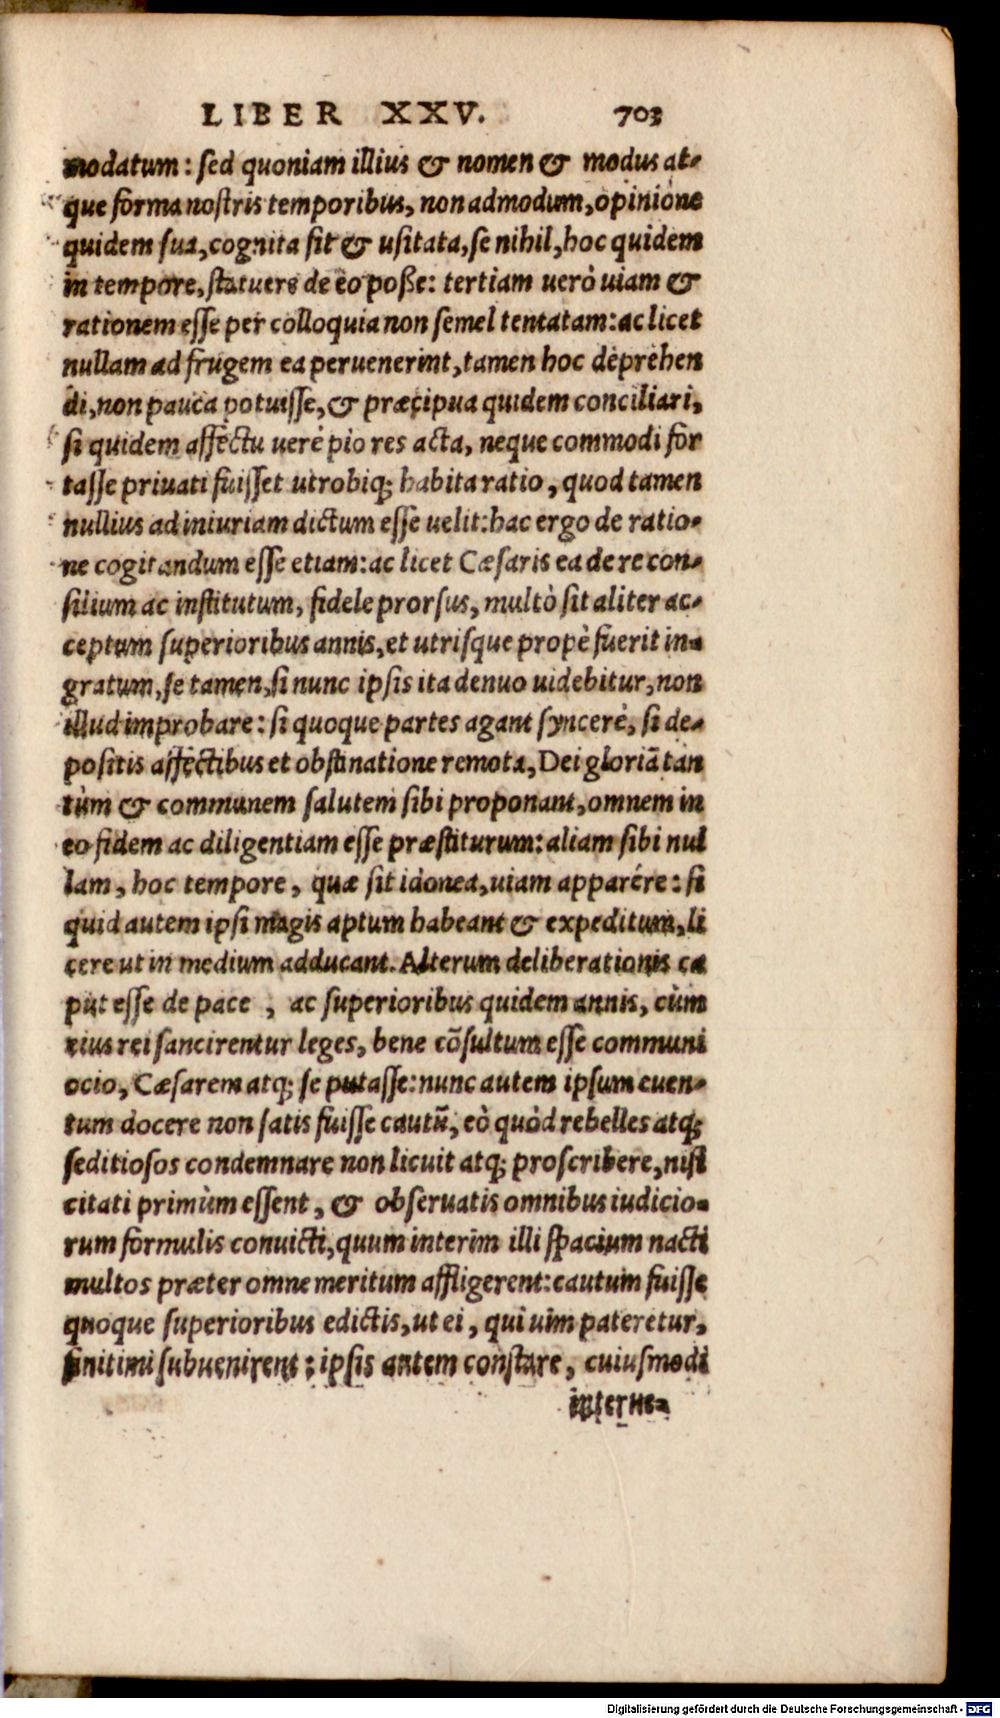 LIBER XXV. 703
modatum: sed quoniam illius & nomen & modus at-
que forma nostris temporibus, non admodum, opinione
quidem sua, cognita sit & usitata, se nihil, hoc quidem
in tempore, statuere de eo posse: tertiam uerò uiam &
rationem esse per colloquia non semel tentatam: ac licet
nullam ad frugem ea peruenerint, tamen hoc deprehen
di, non pauca potuisse, & præcipua quidem conciliari,
si quidem affectu uerè pio res acta, neque commodi for
tasse priuati fuisset utrobiq; habita ratio, quod tamen
nullius ad iniuriam dictum esse uelit: hac ergo de ratio-
ne cogitandum esse etiam: ac licet Cæsaris ea de re con-
silium ac institutum, fidele prorsus, multò sit aliter ac-
ceptum superioribus annis, et utrisque propè fuerit in-
gratum, se tamen, si nunc ipsis ita denuo uidebitur, non
illud improbare: si quoque partes agant syncerè, si de-
positis affectibus et obstinatione remota, Dei gloriã tan
tùm & communem salutem sibi proponant, omnem in
eo fidem ac diligentiam esse præstiturum: aliam sibi nul
lam, hoc tempore, quæ sit idonea, uiam apparére: si
quid autem ipsi magis aptum habeant & expeditum, li
cere ut in medium adducant. Alterum deliberationis ca
put esse de pace , ac superioribus quidem annis, cùm
eius rei sancirentur leges, bene cõsultum esse communi
ocio, Cæsarem atq; se putasse: nunc autem ipsum euen-
tum docere non satis fuisse cautũ, eò quòd rebelles atq;
seditiosos condemnare non licuit atq; proscribere, nisi
citati primùm essent, & obseruatis omnibus iudicio-
rum formulis conuicti, quum interim illi spacium nacti
multos præter omne meritum affligerent: cautum fuisse
quoque superioribus edictis, ut ei, qui uim pateretur,
finitimi subuenirent: ipsis autem constare, cuiusmodi
interue-
Digitalisierung gefördert durch die Deutsche Forschungsgemeinschaft - DFG